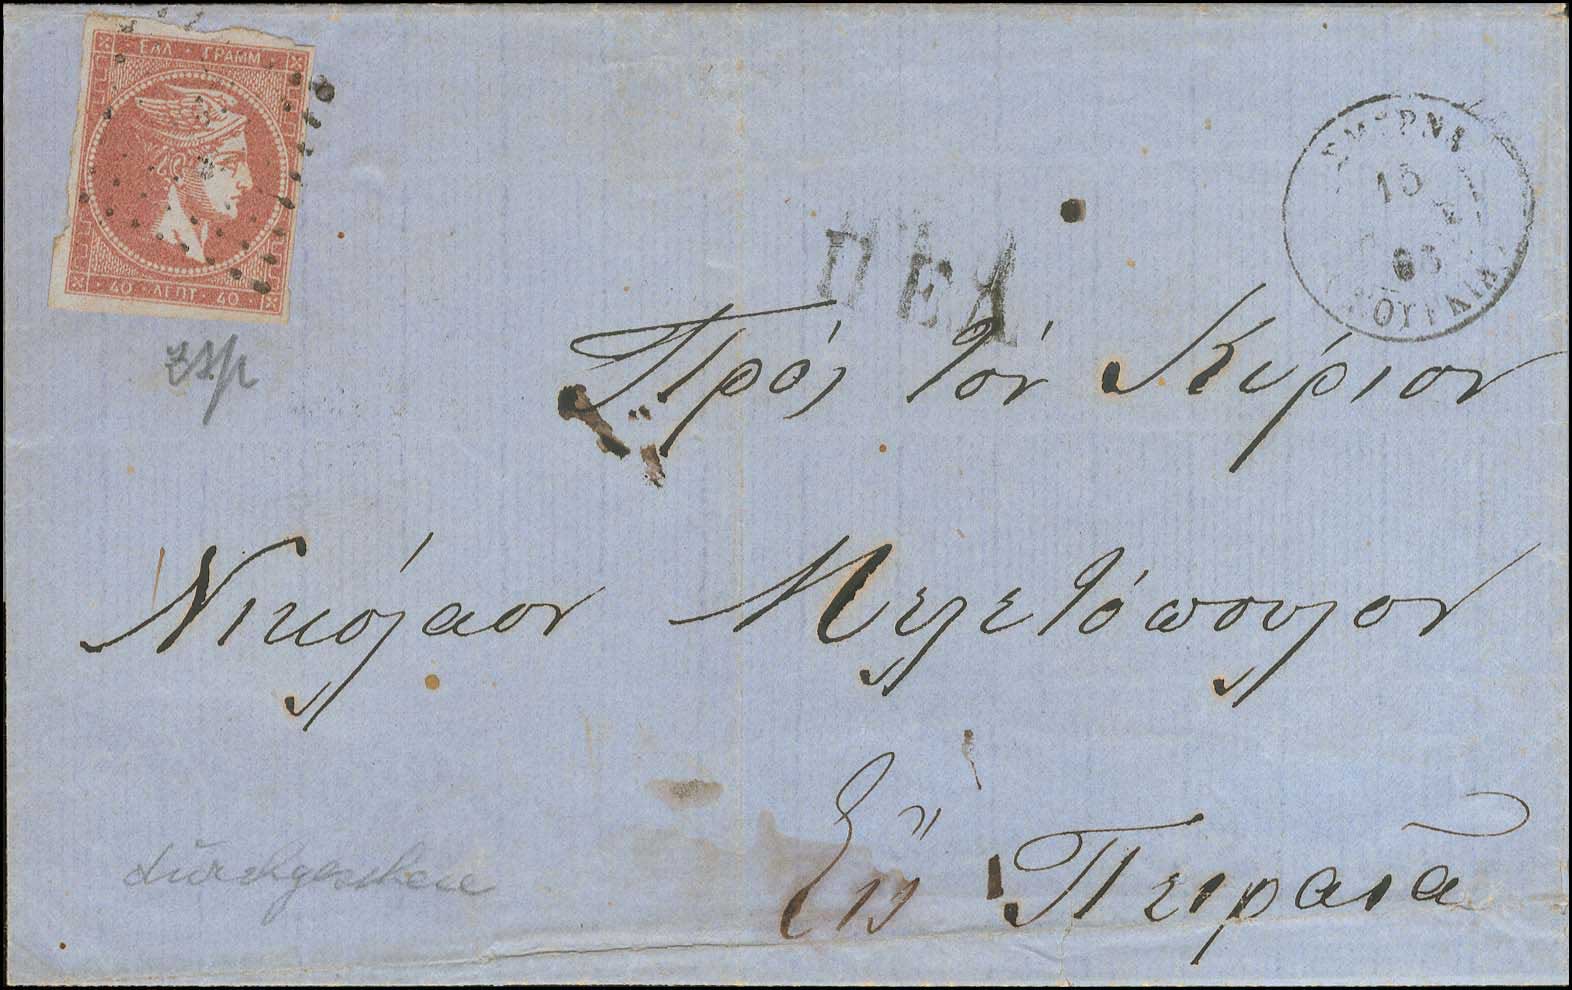 ΕΛΛ · ΓΡΑΜΜ
40 · ΛΕΠΤ · 40
ΣΜΥΡΝΗ
15
65
ΤΟΥΡΚΙΑ
ΠΕΔ
Πρός τόν Κύριον
Νικόλαον Μελετόπουλον
Εἰς Πειραιᾶ